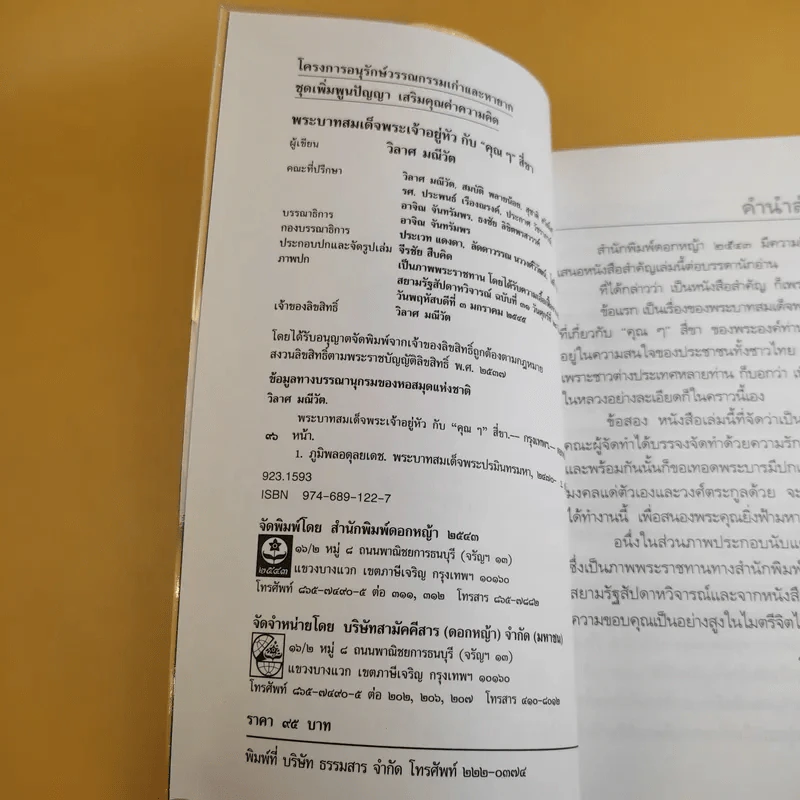 โครงการอนุรักษ์วรรณกรรมเก่าและหายาก
ชุดเพิ่มพูนปัญญา เสริมคุณค่าความคิด
พระบาทสมเด็จพระเจ้าอยู่หัว กับ "คุณ ๆ" สี่ขา
ผู้เขียน วิลาศ มณีวัต
คณะที่ปรึกษา วิลาศ มณีวัต, สมบัติ พลายน้อย,
รศ. ประพนธ์ เรืองณรงค์, ประกาศ
อาจิณ จันทรัมพร, ธงชัย ลิขิตพรสวรรค์
บรรณาธิการ อาจิณ จันทรัมพร
กองบรรณาธิการ ประเวท แดงดา, ลัดดาวรรณ
ประกอบปกและจัดรูปเล่ม จีรชัย สืบคิด
ภาพปก เป็นภาพพระราชทาน โดยได้รับความเอื้อเฟื้อ
สยามรัฐสัปดาหวิจารณ์ ฉบับที่ ๓๑
วันพฤหัสบดีที่ ๓ มกราคม ๒๕๔๕
เจ้าของลิขสิทธิ์ วิลาศ มณีวัต
โดยได้รับอนุญาตจัดพิมพ์จากเจ้าของลิขสิทธิ์ถูกต้องตามกฎหมาย
สงวนลิขสิทธิ์ตามพระราชบัญญัติลิขสิทธิ์ พ.ศ. ๒๕๓๗
ข้อมูลทางบรรณานุกรมของหอสมุดแห่งชาติ
วิลาศ มณีวัต.
พระบาทสมเด็จพระเจ้าอยู่หัว กับ "คุณ ๆ" สี่ขา.— กรุงเทพฯ.—
๙๖ หน้า.
1. ภูมิพลอดุลยเดช. พระบาทสมเด็จพระปรมินทรมหา, ๒๔๗๐-
923.1593
ISBN 974-689-122-7
จัดพิมพ์โดย สำนักพิมพ์ดอกหญ้า ๒๕๔๓
๒๕๔๓
๑๖/๒ หมู่ ๘ ถนนพาณิชยการธนบุรี (จรัญฯ ๑๓)
แขวงบางแวก เขตภาษีเจริญ กรุงเทพฯ ๑๐๑๖๐
โทรศัพท์ ๘๖๕-๗๔๙๐-๕ ต่อ ๓๑๑, ๓๑๒ โทรสาร ๘๖๕-๗๘๘๒
จัดจำหน่ายโดย บริษัทสามัคคีสาร (ดอกหญ้า) จำกัด (มหาชน)
๑๖/๒ หมู่ ๘ ถนนพาณิชยการธนบุรี (จรัญฯ ๑๓)
แขวงบางแวก เขตภาษีเจริญ กรุงเทพฯ ๑๐๑๖๐
โทรศัพท์ ๘๖๕-๗๔๙๐-๕ ต่อ ๒๐๒, ๒๐๖, ๒๐๗ โทรสาร ๔๑๐-๘๐๑๒
ราคา ๙๕ บาท
พิมพ์ที่ บริษัท ธรรมสาร จำกัด โทรศัพท์ ๒๒๒-๐๓๗๔
คำนำ
สำนักพิมพ์ดอกหญ้า ๒๕๔๓ มีความ
เสนอหนังสือสำคัญเล่มนี้ต่อบรรดานักอ่าน
ที่ได้กล่าวว่า เป็นหนังสือสำคัญ ก็
ข้อแรก เป็นเรื่องของพระบาทสมเด็จ
ที่เกี่ยวกับ "คุณ ๆ" สี่ขา ของพระองค์ท่าน
อยู่ในความสนใจของประชาชนทั้งชาวไทย
เพราะชาวต่างประเทศหลายท่าน ก็บอกว่า
ในหลวงอย่างละเอียดก็ในคราวนี้เอง
ข้อสอง หนังสือเล่มนี้ที่จัดว่าเป็น
คณะผู้จัดทำได้บรรจงจัดทำด้วยความรัก
และพร้อมกันนั้นก็ขอเทอดพระบารมีปก
มงคลแด่ตัวเองและวงศ์ตระกูลด้วย
ได้ทำงานนี้ เพื่อสนองพระคุณยิ่งฟ้ามหา
อนึ่งในส่วนภาพประกอบนับ
ซึ่งเป็นภาพพระราชทานทางสำนักพิมพ์
สยามรัฐสัปดาหวิจารณ์และจากหนังสือ
ความขอบคุณเป็นอย่างสูงในไมตรีจิต